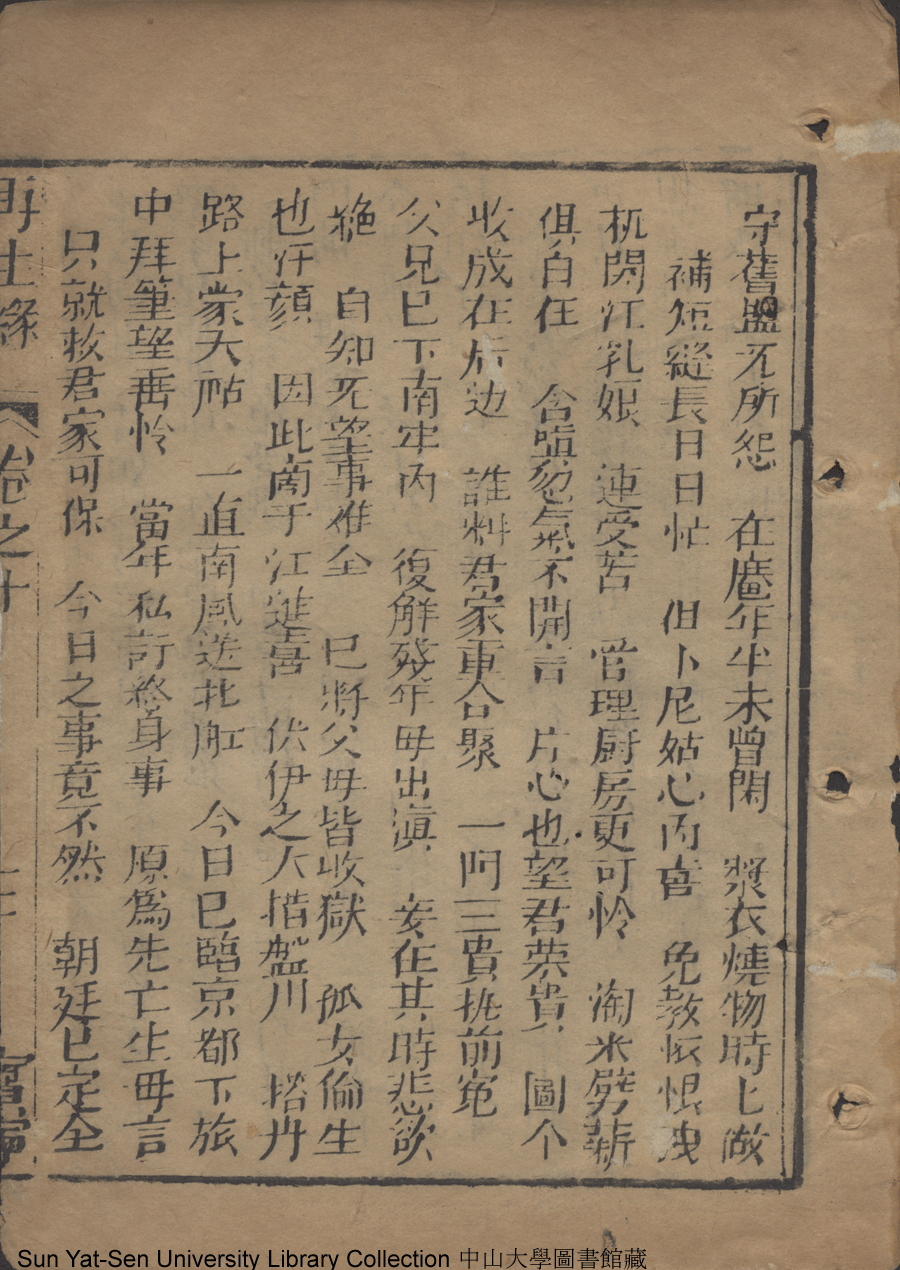 守舊盟无所怨　在庵年半未曾閑　漿衣燒物時匕做
補短縫長日日忙　但卜尼姑心内喜　免教恢恨洩
机関江乳娘　連受苦　管理厨房更可怜　淘米劈薪
俱自任　含嗔忍氣不開言　片心也望君荣貴　圖个
收成在后边　誰料君家重合聚　一門三貴挑前寃
父兄已下南牢内　復解殘年毋出滇　妾在其時悲欲
絶　自知无望事难全　巳將父毋皆收獄　孤女偷生
也汗顔　因此南于江進喜　伏伊之大措盤川　搭舟
路上蒙天祐　一直南風送北舡　今日巳臨京都下旅
中拜筆望垂怜　當年私訂終身事　原爲先亡生毋言
只就救君家可保　今日之事竟不然　朝廷已定全
再生緣　卷之十
Sun Yat-Sen University Library Collection 中山大學圖書館藏